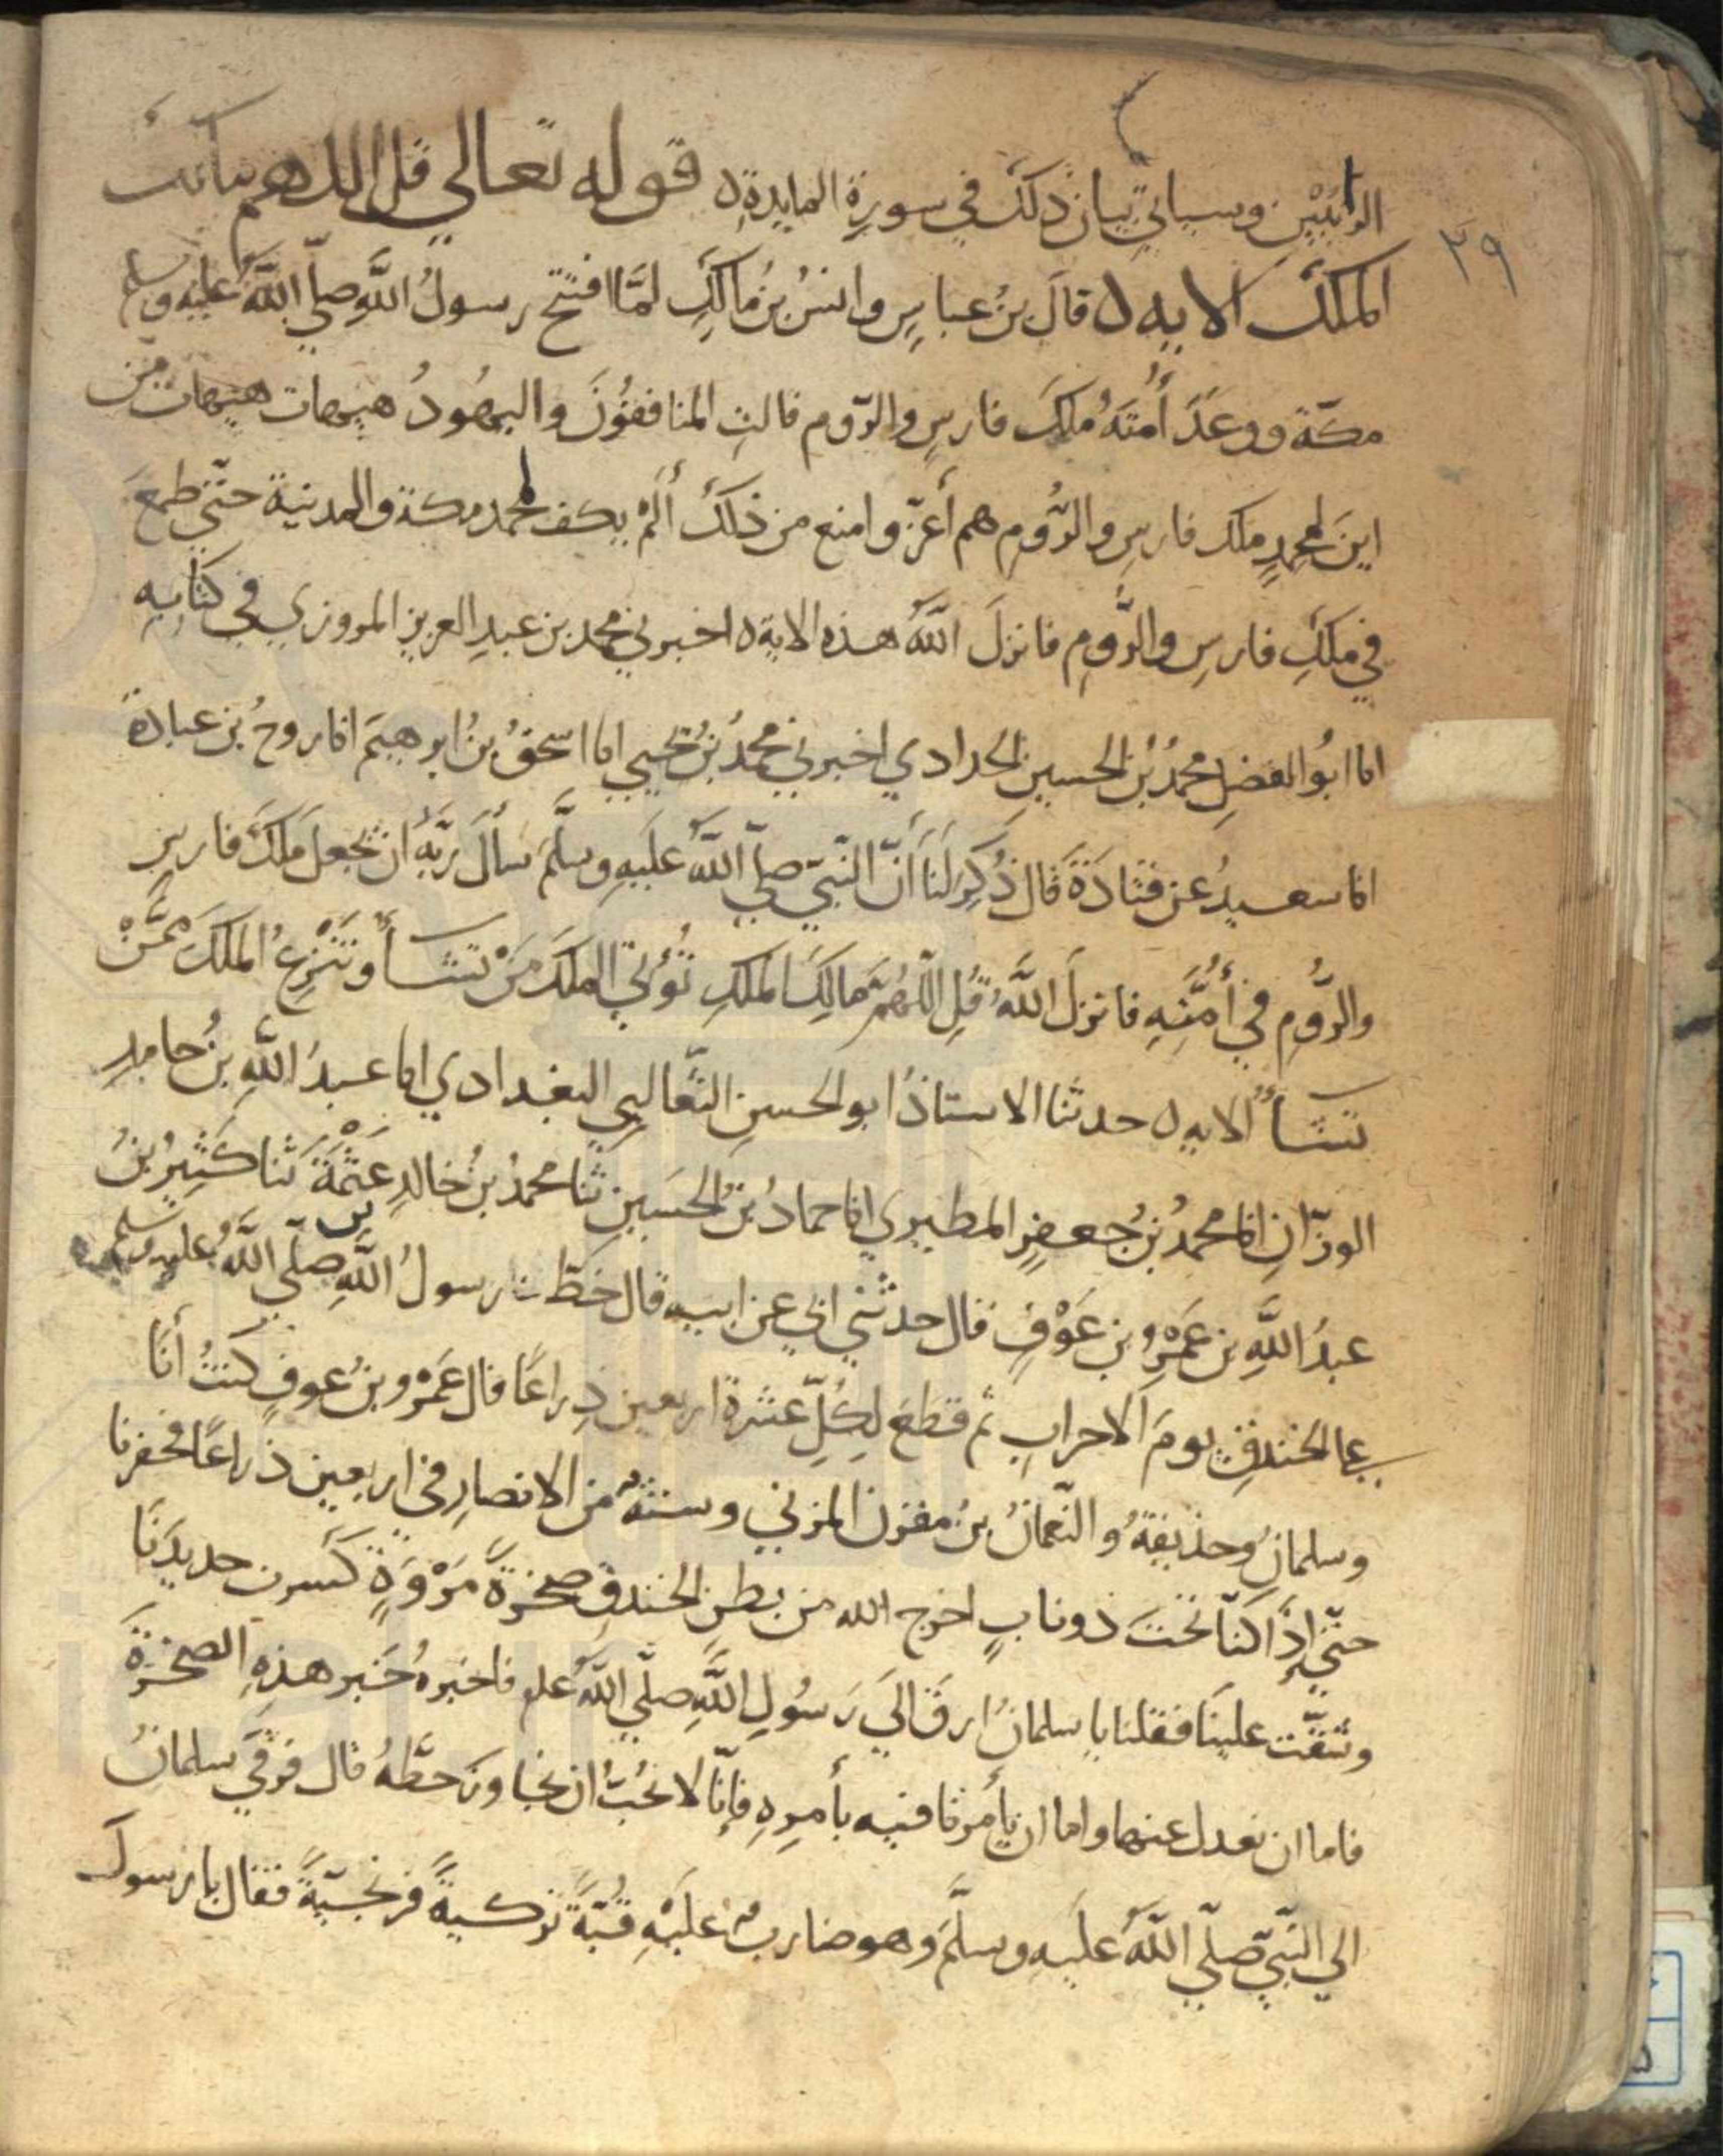 الزانيين وسياتي بيان ذلك في سورة المايدة ه قوله تعالي قل اللهم مالك
٢٩
الملك الايه ه قال بن عباس وانس بن مالك لمّا افتتح رسول الله صلّي الله عليه وسلم
مكّة ووعد أمّته ملك فارس والرّوم قالت المنافقون واليهود هيهات هيهات من
اين لمحمد ملك فارس والرّوم هم أعزّ وامنع من ذلك ألم يكف محمد مكة والمدينة حتّي طمع
في ملك فارس والرّوم فانزل الله هذه الاية ه اخبرني محمد بن عبد العزيز المروزي في كتابه
انا ابو الفضل محمد بن الحسين الحدادي اخبرني محمد بن يحيي انا اسحق بن ابرهيم انا روح بن عبادة
انا سعيد عن قتادة قال ذكر لنا أنّ النّبيّ صلّي الله عليه وسلّم سأل ربّه ان يجعل ملك فارس
والرّوم في أمّته فانزل الله قل اللّهمّ مالك الملك تؤتي الملك من تشأ وتنزع الملك ممّن
تشأ الايه ه حدثنا الاستاذ ابو الحسن الثّعالبي البغدادي انا عبد الله بن حامد
الوزّان انا محمد بن جعفر المطيري انا حماد بن الحسين ثنا محمد بن خالد عثمة ثنا كثير بن
عبد الله بن عمرو بن عوف قال حدثني ابي عن ابيه قال خطّ رسول الله صلّي الله عليه وسلم
علي الخندق يوم الاحزاب ثم قطع لكلّ عشرة اربعين ذراعًا قال عمرو بن عوف كنت أنا
وسلمان وحذيفة والنّعمان بن مقرن المزني وستّة من الانصار في اربعين ذراعًا فحفرنا
حتّي إذا كنّا تحت ذوناب اخرج الله من بطن الخندق صخرة مروة كسرت حديدنا
وشقّت علينا فقلنا يا سلمان ارق الي رسول الله صلّي الله علم فاخبره خبر هذه الصخرة
فاما ان نعدل عنها واما ان يأمرنا فيه بأمره فإنّا لا نحبّ ان نجاوز خطّه قال فرقي سلمان
الي النّبيّ صلّي الله عليه وسلّم وهو ضارب عليه قبّة تركية فقال يا رسول